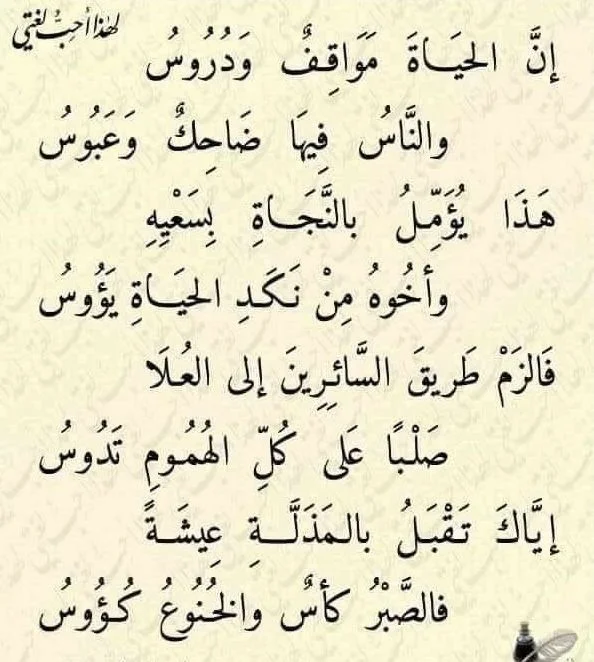 لهذا أحب لغتي
إنَّ الحيَاةَ مَوَاقِفٌ وَدُرُوسُ
والنَّاسُ فِيهَا ضَاحِكٌ وَعَبُوسُ
هَذَا يُؤَمِّلُ بالنَّجَاةِ بِسَعْيِهِ
وأخُوهُ مِنْ نَكَدِ الحيَاةِ يَؤُوسُ
فَالزَمْ طَريقَ السَّائِرِينَ إلى العُلَا
صَلْبًا عَلى كُلِّ الهُمُومِ تَدُوسُ
إيَّاكَ تَقْبَلُ بالمَذَلَّةِ عِيشَةً
فالصَّبْرُ كأسٌ والخُنُوعُ كُؤُوسُ